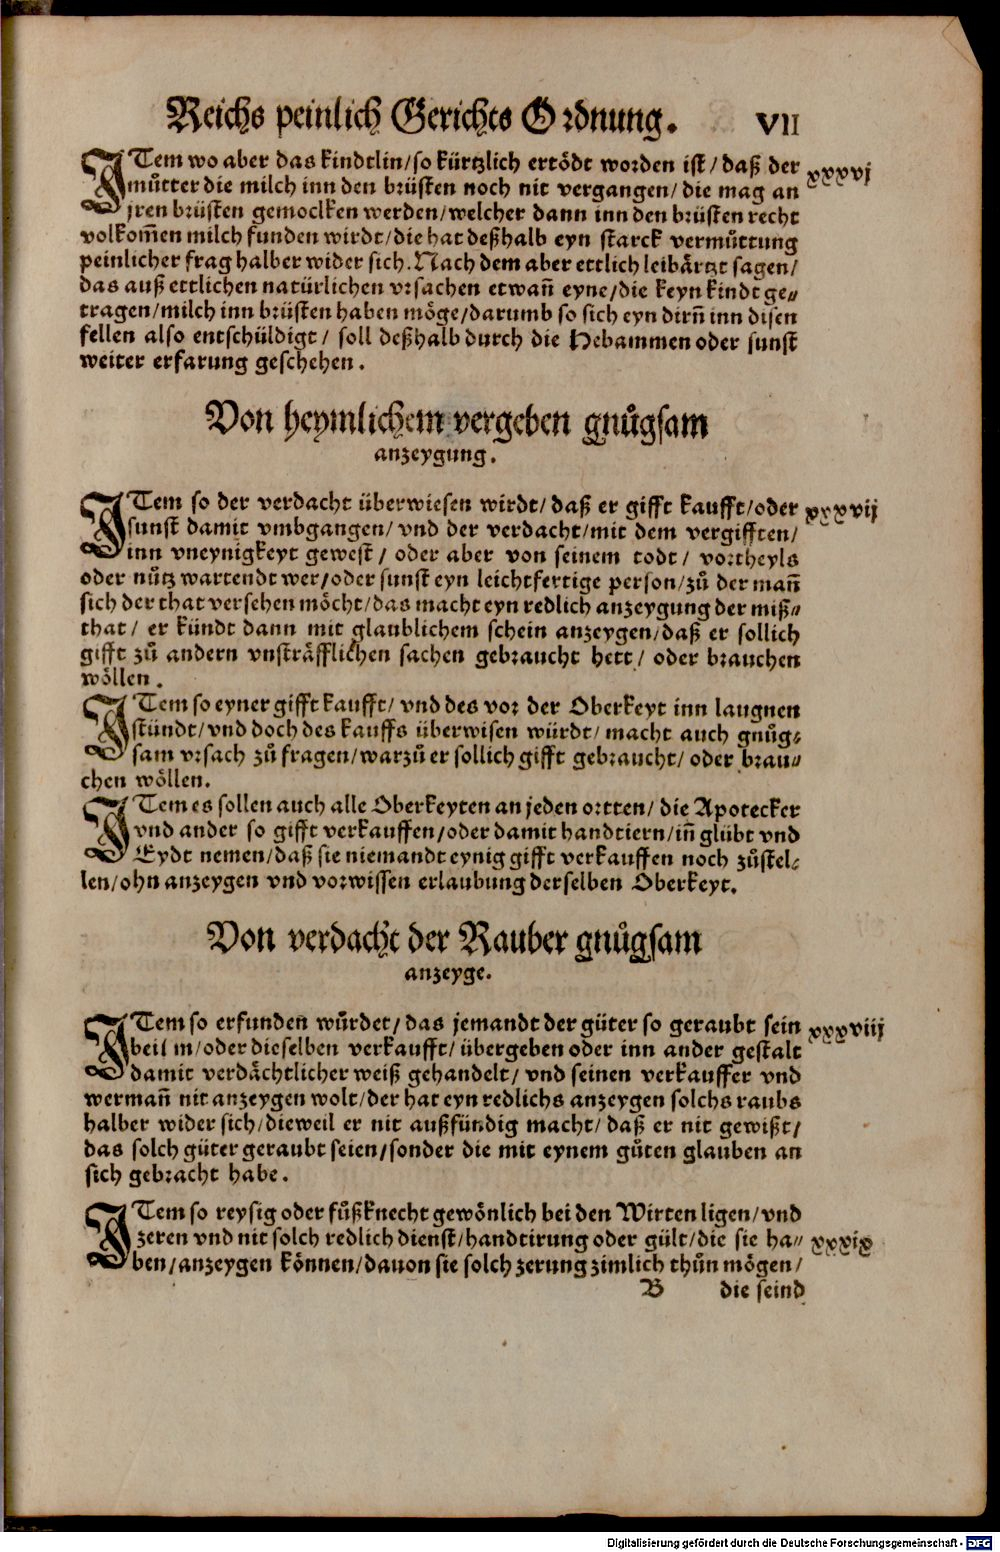 Reichs peinlich Gerichts Ordnung. VII
ITem wo aber das kindtlin/so kürtzlich ertödt worden ist/ daß der xxxvj
můtter die milch inn den brüsten noch nit vergangen/ die mag an
jren brüsten gemolcken werden/welcher dann inn den brüsten recht
volkom̃en milch funden wirdt/die hat deßhalb eyn starck vermůttung
peinlicher frag halber wider sich. Nach dem aber ettlich leibärtzt sagen/
das auß ettlichen natürlichen vrsachen etwañ eyne/die keyn kindt ge⸗
tragen/milch inn brüsten haben möge/darumb so sich eyn dirñ inn disen
fellen also entschüldigt/ soll deßhalb durch die Hebammen oder sunst
weiter erfarung geschehen.
Von heymlichem vergeben gnůgsam
anzeygung.
ITem so der verdacht überwiesen wirdt/ daß er gifft kaufft/oder xxxvij
sunst damit vmbgangen/ vnd der verdacht/mit dem vergifften/
inn vneynigkeyt gewest/ oder aber von seinem todt/ vortheyls
oder nůtz wartendt wer/oder sunst eyn leichtfertige person/zů der mañ
sich der that versehen möcht/das macht eyn redlich anzeygung der miß⸗
that/ er kündt dann mit glaublichem schein anzeygen/daß er sollich
gifft zů andern vnsträfflichen sachen gebraucht hett/ oder brauchen
wöllen.
ITem so eyner gifft kaufft/ vnd des vor der Oberkeyt inn laugnen
stündt/vnd doch des kauffs überwisen würdt/ macht auch gnůg⸗
sam vrsach zů fragen/warzů er sollich gifft gebraucht/ oder brau⸗
chen wöllen.
ITem es sollen auch alle Oberkeyten an jeden ortten/ die Apotecker
vnd ander so gifft verkauffen/oder damit handtiern/iñ glübt vnd
Eydt nemen/daß sie niemandt eynig gifft verkauffen noch zůstel⸗
len/ohn anzeygen vnd vorwissen erlaubung derselben Oberkeyt.
Von verdacht der Rauber gnůgsam
anzeyge.
ITem so erfunden würdet/ das jemandt der güter so geraubt sein xxxviij
bei im/oder dieselben verkaufft/ übergeben oder inn ander gestalt
damit verdächtlicher weiß gehandelt/ vnd seinen verkauffer vnd
wermañ nit anzeygen wolt/der hat eyn redlichs anzeygen solchs raubs
halber wider sich/dieweil er nit außfündig macht/ daß er nit gewißt/
das solch güter geraubt seien/sonder die mit eynem gůten glauben an
sich gebracht habe.
ITem so reysig oder fůßknecht gewönlich bei den Wirten ligen/vnd
zeren vnd nit solch redlich dienst/handtirung oder gült/die sie ha⸗ xxxix
ben/anzeygen können/dauon sie solch zerung zimlich thůn mögen/
B die seind
Digitalisierung gefördert durch die Deutsche Forschungsgemeinschaft - DFG